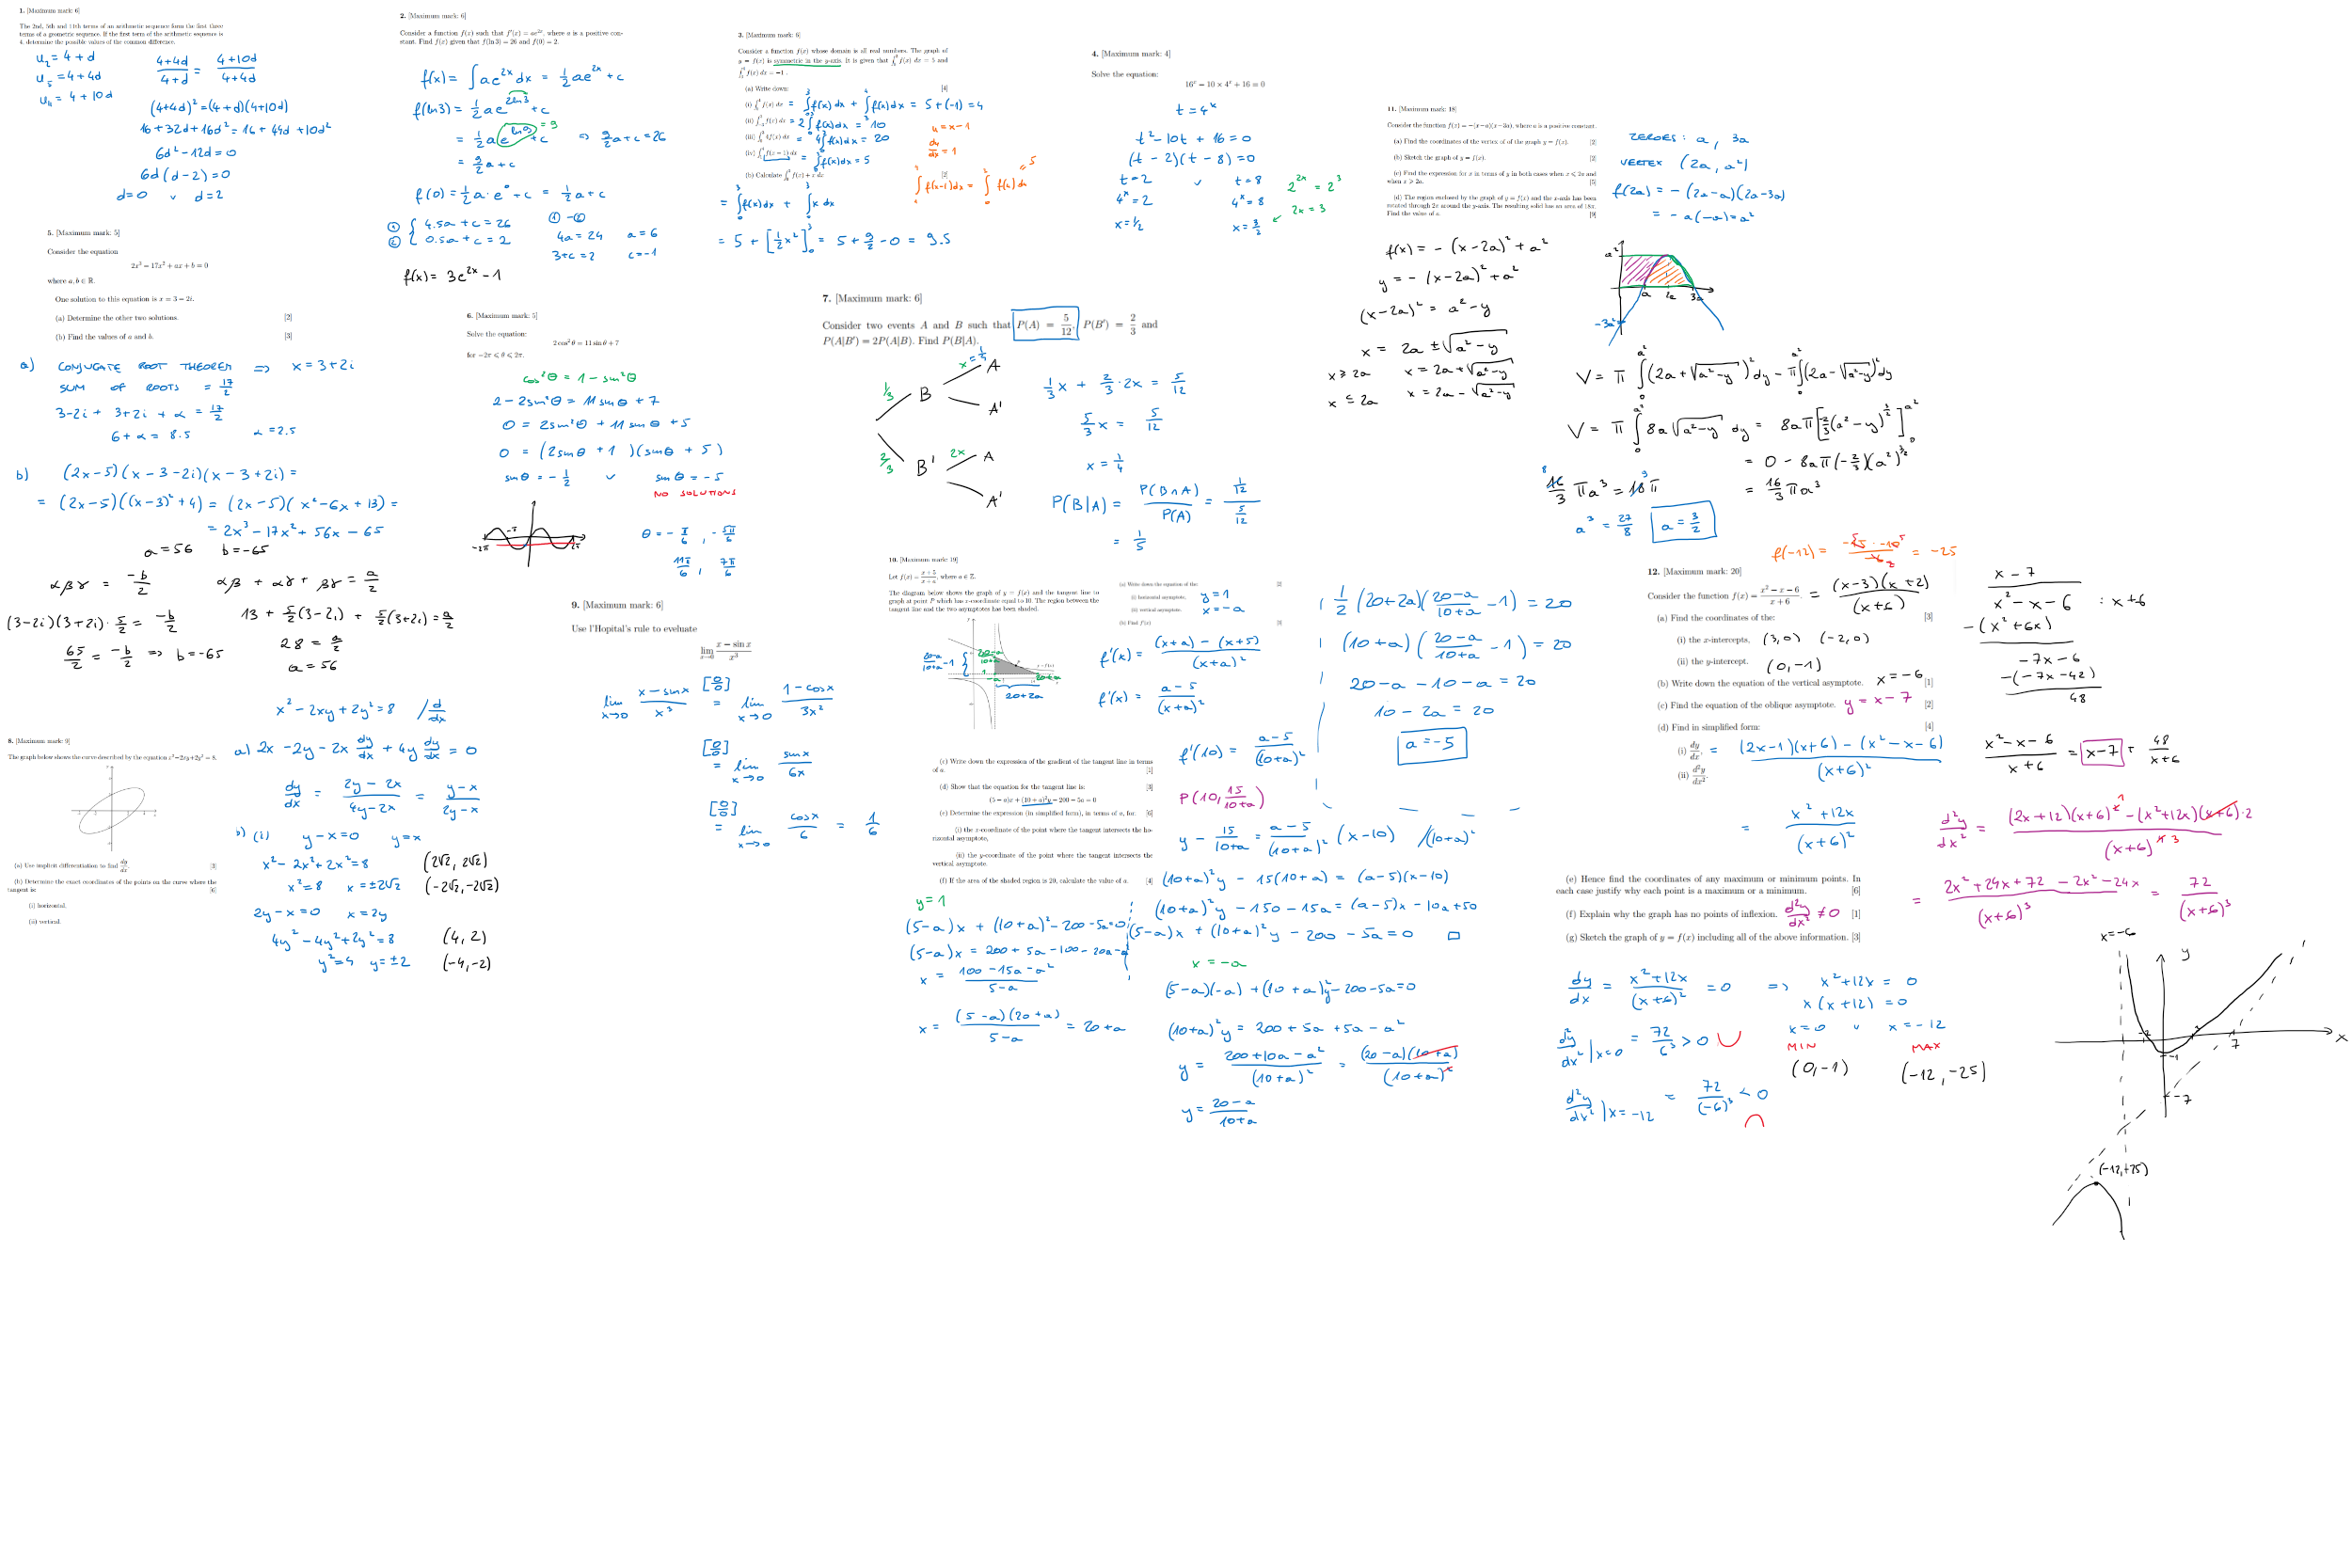 1. [Maximum mark: 6]
The 2nd, 5th and 11th terms of an arithmetic sequence form the first three
terms of a geometric sequence. If the first term of the arithmetic sequence is
4, determine the possible values of the common difference.
u₂ = 4 + d
u₅ = 4 + 4d
u₁₁ = 4 + 10d
(4+4d)/(4+d) = (4+10d)/(4+4d)
(4+4d)² = (4+d)(4+10d)
16 + 32d + 16d² = 16 + 44d + 10d²
6d² - 12d = 0
6d(d-2) = 0
d=0 v d=2
2. [Maximum mark: 6]
Consider a function f(x) such that f'(x) = ae²ˣ, where a is a positive con-
stant. Find f(x) given that f(ln 3) = 26 and f(0) = 2.
f(x) = ∫ae²ˣ dx = ½ae²ˣ + c
f(ln3) = ½ae^(2ln3) + c
= ½ae^(ln9) + c = 9 ⇒ 9/2 a + c = 26
= 9/2 a + c
f(0) = ½a·e⁰ + c = ½a + c
① 4.5a + c = 26
② 0.5a + c = 2
① - ②
4a = 24 a = 6
3 + c = 2 c = -1
f(x) = 3e²ˣ - 1
3. [Maximum mark: 6]
Consider a function f(x) whose domain is all real numbers. The graph of
y = f(x) is symmetric in the y-axis. It is given that ∫₀³ f(x) dx = 5 and
∫₃⁴ f(x) dx = -1.
(a) Write down: [4]
(i) ∫₀⁴ f(x) dx = ∫₀³ f(x)dx + ∫₃⁴ f(x)dx = 5 + (-1) = 4
(ii) ∫₋₃³ f(x) dx = 2∫₀³ f(x)dx = 10
(iii) ∫₀³ 4f(x) dx = 4∫₀³ f(x)dx = 20
(iv) ∫₁⁴ f(x - 1) dx = ∫₀³ f(x)dx = 5
u = x-1
du/dx = 1
(b) Calculate ∫₀³ f(x) + x dx [2]
= ∫₀³ f(x)dx + ∫₀³ x dx
= 5 + [½x²]₀³ = 5 + 9/2 - 0 = 9.5
4. [Maximum mark: 4]
Solve the equation:
16ˣ - 10 × 4ˣ + 16 = 0
t = 4ˣ
t² - 10t + 16 = 0
(t - 2)(t - 8) = 0
t = 2 v t = 8
4ˣ = 2 4ˣ = 8
x = 1/2 x = 3/2
2²ˣ = 2³
2x = 3
5. [Maximum mark: 5]
Consider the equation
2x³ - 17x² + ax + b = 0
where a, b ∈ ℝ.
One solution to this equation is x = 3 - 2i.
(a) Determine the other two solutions. [2]
(b) Find the values of a and b. [3]
a) CONJUGATE ROOT THEOREM ⇒ x = 3+2i
SUM OF ROOTS = 17/2
3-2i + 3+2i + α = 17/2
6 + α = 8.5 α = 2.5
b) (2x-5)(x-3-2i)(x-3+2i) =
= (2x-5)((x-3)²+4) = (2x-5)(x²-6x+13) =
= 2x³ - 17x² + 56x - 65
a = 56 b = -65
αβγ = -b/2 αβ + αγ + βγ = a/2
(3-2i)(3+2i)·5/2 = -b/2 13 + 5/2(3-2i) + 5/2(3+2i) = a/2
65/2 = -b/2 ⇒ b = -65
28 = a/2
a = 56
6. [Maximum mark: 5]
Solve the equation:
2 cos² θ = 11 sin θ + 7
for -2π ⩽ θ ⩽ 2π.
cos²θ = 1 - sin²θ
2 - 2sin²θ = 11sinθ + 7
0 = 2sin²θ + 11sinθ + 5
0 = (2sinθ + 1)(sinθ + 5)
sinθ = -½ v sinθ = -5
NO SOLUTIONS
-2π -π 2π
θ = -π/6, -5π/6
11π/6, 7π/6
7. [Maximum mark: 6]
Consider two events A and B such that P(A) = 5/12, P(B') = 2/3 and
P(A|B') = 2P(A|B). Find P(B|A).
1/3 B x=¼ A
A'
2/3 B' 2x A
A'
1/3 x + 2/3·2x = 5/12
5/3 x = 5/12
x = 1/4
P(B|A) = P(B∩A)/P(A) = (1/12)/(5/12)
= 1/5
8. [Maximum mark: 9]
The graph below shows the curve described by the equation x²-2xy+2y² = 8.
(a) Use implicit differentiation to find dy/dx. [3]
(b) Determine the exact coordinates of the points on the curve where the
tangent is: [6]
(i) horizontal,
(ii) vertical.
x² - 2xy + 2y² = 8 /d/dx
a) 2x - 2y - 2x dy/dx + 4y dy/dx = 0
dy/dx = (2y-2x)/(4y-2x) = (y-x)/(2y-x)
b) (i) y-x=0 y=x
x² - 2x² + 2x² = 8 (2√2, 2√2)
x² = 8 x = ±2√2 (-2√2, -2√2)
2y-x=0 x=2y
4y² - 4y² + 2y² = 8 (4, 2)
y² = 4 y = ±2 (-4, -2)
9. [Maximum mark: 6]
Use l'Hopital's rule to eveluate
lim x→0 (x - sin x)/x³
lim x→0 (x - sinx)/x³ [0/0] = lim x→0 (1-cosx)/3x²
[0/0] = lim x→0 sinx/6x
[0/0] = lim x→0 cosx/6 = 1/6
10. [Maximum mark: 19]
Let f(x) = (x+5)/(x+a), where a ∈ ℤ.
The diagram below shows the graph of y = f(x) and the tangent line to
graph at point P which has x-coordinate equal to 10. The region between the
tangent line and the two asymptotes has been shaded.
(20-a)/(10+a) - 1
(20-a)/(10+a)
1
-a
20+a
20+2a
(a) Write down the equation of the: [2]
(i) horizontal asymptote, y = 1
(ii) vertical asymptote. x = -a
(b) Find f'(x) [3]
f'(x) = ((x+a) - (x+5))/(x+a)²
f'(x) = (a-5)/(x+a)²
(c) Write down the expression of the gradient of the tangent line in terms
of a. [1]
f'(10) = (a-5)/(10+a)²
(d) Show that the equation for the tangent line is: [3]
(5 - a)x + (10 + a)²y - 200 - 5a = 0
(e) Determine the expression (in simplified form), in terms of a, for: [6]
(i) the x-coordinate of the point where the tangent intersects the ho-
rizontal asymptote,
(ii) the y-coordinate of the point where the tangent intersects the
vertical asymptote.
(f) If the area of the shaded region is 20, calculate the value of a. [4]
P(10, 15/(10+a))
y - 15/(10+a) = (a-5)/(10+a)² (x-10) /(10+a)²
(10+a)²y - 15(10+a) = (a-5)(x-10)
(10+a)²y - 150 - 15a = (a-5)x - 10a + 50
(5-a)x + (10+a)²y - 200 - 5a = 0 □
y = 1
(5-a)x + (10+a)² - 200 - 5a = 0
(5-a)x = 200 + 5a - 100 - 20a - a²
x = (100 - 15a - a²)/(5-a)
x = (5-a)(20+a)/(5-a) = 20+a
x = -a
(5-a)(-a) + (10+a)²y - 200 - 5a = 0
(10+a)²y = 200 + 5a + 5a - a²
y = (200+10a-a²)/(10+a)² = (20-a)(10+a)/(10+a)²
y = (20-a)/(10+a)
½(20+2a)((20-a)/(10+a) - 1) = 20
(10+a)((20-a)/(10+a) - 1) = 20
20 - a - 10 - a = 20
10 - 2a = 20
a = -5
11. [Maximum mark: 18]
Consider the function f(x) = -(x-a)(x-3a), where a is a positive constant.
(a) Find the coordinates of the vertex of of the graph y = f(x). [2]
(b) Sketch the graph of y = f(x). [2]
(c) Find the expression for x in terms of y in both cases when x ⩽ 2a and
when x ⩾ 2a. [5]
(d) The region enclosed by the graph of y = f(x) and the x-axis has been
rotated through 2π around the y-axis. The resulting solid has an area of 18π.
Find the value of a. [9]
ZEROES: a, 3a
VERTEX (2a, a²)
f(2a) = -(2a-a)(2a-3a)
= -a(-a) = a²
f(x) = -(x-2a)² + a²
y = -(x-2a)² + a²
(x-2a)² = a² - y
x = 2a ± √(a²-y)
x ⩾ 2a x = 2a + √(a²-y)
x ⩽ 2a x = 2a - √(a²-y)
a²
a 2a 3a
-3a²
V = π∫₀^(a²) (2a + √(a²-y))² dy - π∫₀^(a²) (2a - √(a²-y))² dy
V = π∫₀^(a²) 8a√(a²-y) dy = 8aπ[-2/3(a²-y)^(3/2)]₀^(a²)
= 0 - 8aπ(-2/3)(a²)^(3/2)
= 16/3 πa³
16/3 πa³ = 18π
8 9
a³ = 27/8 a = 3/2
12. [Maximum mark: 20]
Consider the function f(x) = (x² - x - 6)/(x + 6). = (x-3)(x+2)/(x+6)
f(-12) = -15·-10/-6 = -25
(a) Find the coordinates of the: [3]
(i) the x-intercepts, (3,0) (-2,0)
(ii) the y-intercept. (0,-1)
(b) Write down the equation of the vertical asymptote. x = -6 [1]
(c) Find the equation of the oblique asymptote. y = x-7 [2]
(d) Find in simplified form: [4]
(i) dy/dx, = ((2x-1)(x+6) - (x²-x-6))/(x+6)²
(ii) d²y/dx².
= (x²+12x)/(x+6)²
x - 7
x² - x - 6 : x+6
-(x²+6x)
-7x-6
-(-7x-42)
48
(x²-x-6)/(x+6) = x-7 + 48/(x+6)
d²y/dx² = ((2x+12)(x+6)² - (x²+12x)(x+6)·2)/(x+6)⁴ 3
= (2x²+24x+72 - 2x²-24x)/(x+6)³ = 72/(x+6)³
(e) Hence find the coordinates of any maximum or minimum points. In
each case justify why each point is a maximum or a minimum. [6]
(f) Explain why the graph has no points of inflexion. d²y/dx² ≠ 0 [1]
(g) Sketch the graph of y = f(x) including all of the above information. [3]
dy/dx = (x²+12x)/(x+6)² = 0 ⇒ x²+12x = 0
x(x+12) = 0
x=0 v x=-12
MIN MAX
(0,-1) (-12,-25)
d²y/dx² |x=0 = 72/6³ > 0
d²y/dx² |x=-12 = 72/(-6)³ < 0
x=-6
y
x
-2 7
-1
-7
(-12,+25)